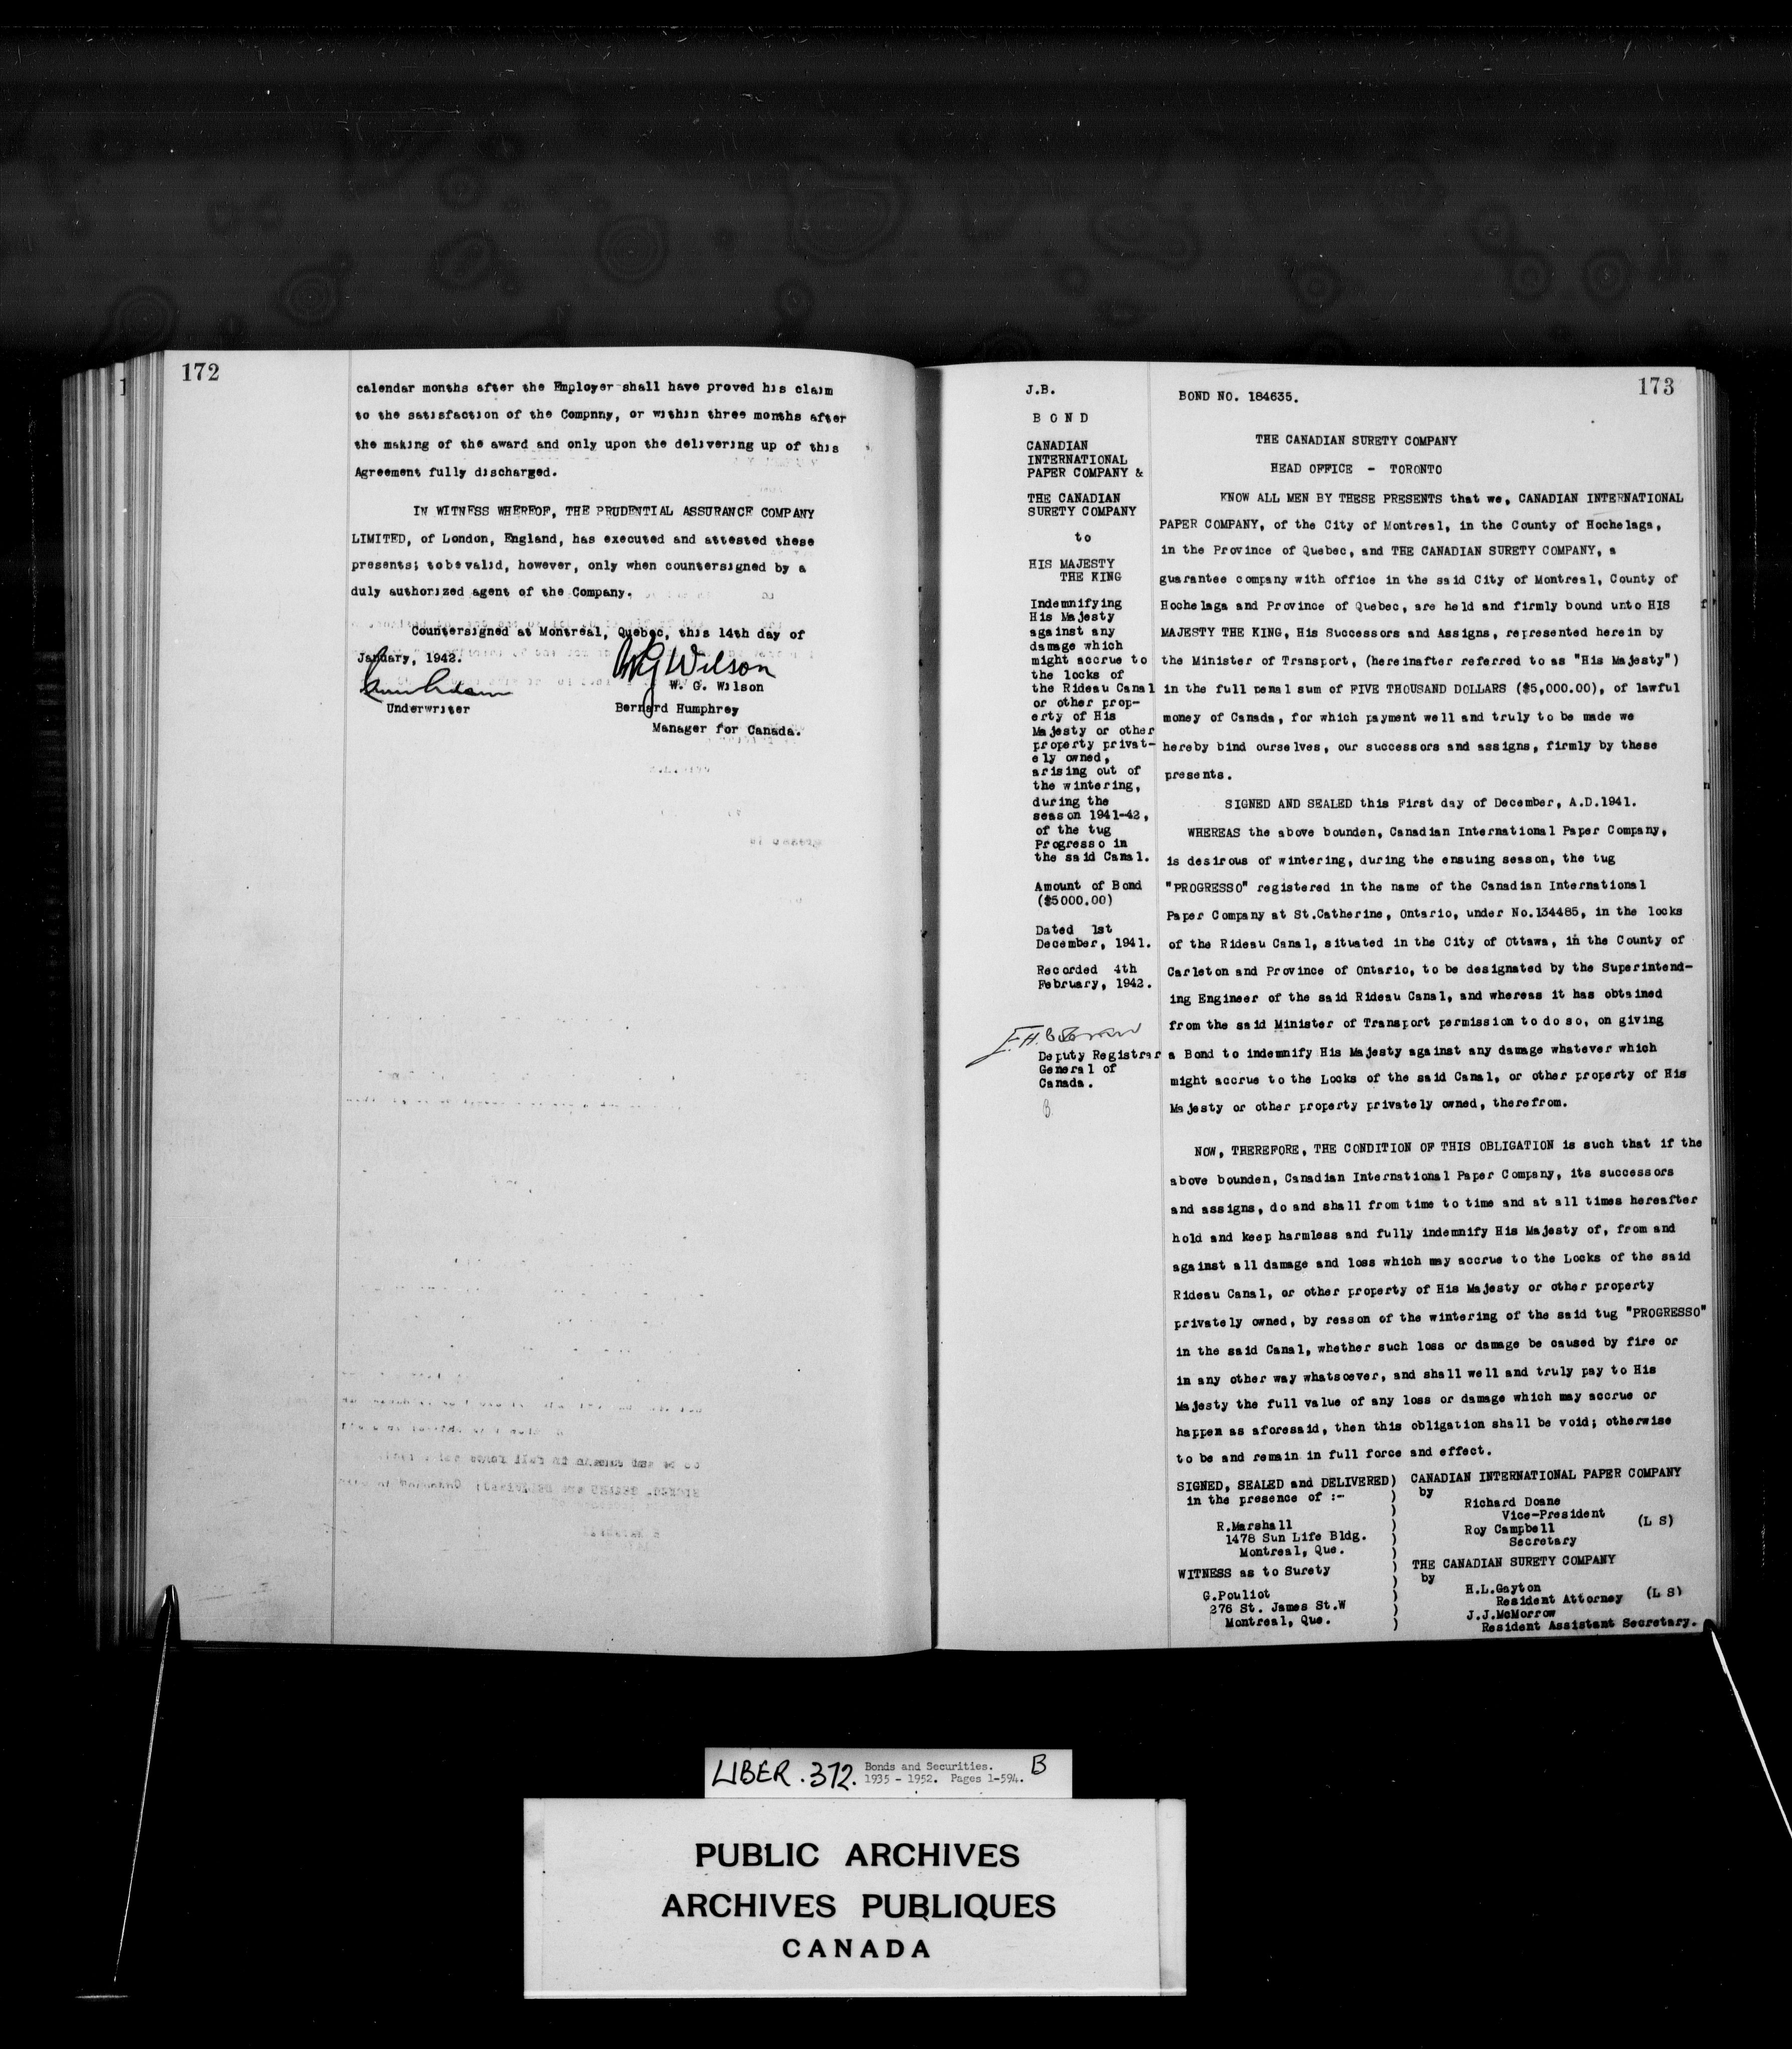 172
calendar months after the Employer shall have proved his claim
to the satisfaction of the Compnny, or within three months after
the making of the award and only upon the delivering up of this
Agreement fully discharged.
IN WITNESS WHEREOF, THE PRUDENTIAL ASSURANCE COMPANY
LIMITED, of London, England, has executed and attested these
presents; tobevalid, however, only when countersigned by a
duly authorized agent of the Company.
Countersigned at Montreal, Quebec, this 14th day of
January, 1942.
WG Wilson
W. G. Wilson
Underwriter
Bernard Humphrey
Manager for Canada.
173
J.B.
B O N D
CANADIAN
INTERNATIONAL
PAPER COMPANY &
THE CANADIAN
SURETY COMPANY
to
HIS MAJESTY
THE KING
Indemnifying
His Majesty
against any
damage which
might accrue to
the locks of
the Rideau Canal
or other prop-
erty of His
Majesty or other
property privat-
ely owned,
arising out of
the wintering,
during the
season 1941-42,
of the tug
Progresso in
the said Canal.
Amount of Bond
($5000.00)
Dated 1st
December, 1941.
Recorded 4th
February, 1942.
Deputy Registrar
General of
Canada.
BOND NO. 184635.
THE CANADIAN SURETY COMPANY
HEAD OFFICE - TORONTO
KNOW ALL MEN BY THESE PRESENTS that we, CANADIAN INTERNATIONAL
PAPER COMPANY, of the City of Montreal, in the County of Hochelaga,
in the Province of Quebec, and THE CANADIAN SURETY COMPANY, a
guarantee company with office in the said City of Montreal, County of
Hochelaga and Province of Quebec, are held and firmly bound unto HIS
MAJESTY THE KING, His Successors and Assigns, represented herein by
the Minister of Transport, (hereinafter referred to as "His Majesty")
in the full penal sum of FIVE THOUSAND DOLLARS ($5,000.00), of lawful
money of Canada, for which payment well and truly to be made we
hereby bind ourselves, our successors and assigns, firmly by these
presents.
SIGNED AND SEALED this First day of December, A.D.1941.
WHEREAS the above bounden, Canadian International Paper Company,
is desirous of wintering, during the ensuing season, the tug
"PROGRESSO" registered in the name of the Canadian International
Paper Company at St.Catherine, Ontario, under No.134485, in the locks
of the Rideau Canal, situated in the City of Ottawa, in the County of
Carleton and Province of Ontario, to be designated by the Superintend-
ing Engineer of the said Rideau Canal, and whereas it has obtained
from the said Minister of Transport permission to do so, on giving
a Bond to indemnify His Majesty against any damage whatever which
might accrue to the Locks of the said Canal, or other property of His
Majesty or other property privately owned, therefrom.
NOW, THEREFORE, THE CONDITION OF THIS OBLIGATION is such that if the
above bounden, Canadian International Paper Company, its successors
and assigns, do and shall from time to time and at all times hereafter
hold and keep harmless and fully indemnify His Majesty of, from and
against all damage and loss which may accrue to the Locks of the said
Rideau Canal, or other property of His Majesty or other property
privately owned, by reason of the wintering of the said tug "PROGRESSO"
in the said Canal, whether such loss or damage be caused by fire or
in any other way whatsoever, and shall well and truly pay to His
Majesty the full value of any loss or damage which may accrue or
happen as aforesaid, then this obligation shall be void; otherwise
to be and remain in full force and effect.
SIGNED, SEALED and DELIVERED) CANADIAN INTERNATIONAL PAPER COMPANY
in the presence of :- ) by
Richard Doane
Vice-President
R.Marshall ) Roy Campbell (L S)
1478 Sun Life Bldg. ) Secretary
Montreal, Que. )
WITNESS as to Surety ) THE CANADIAN SURETY COMPANY
) by
G.Pouliot ) H.L.Gayton
276 St. James St.W ) Resident Attorney (L S)
Montreal, Que. ) J.J.McMorrow
Resident Assistant Secretary.
LIBER . 372. Bonds and Securities. B
1935 - 1952. Pages 1-594.
PUBLIC ARCHIVES
ARCHIVES PUBLIQUES
CANADA